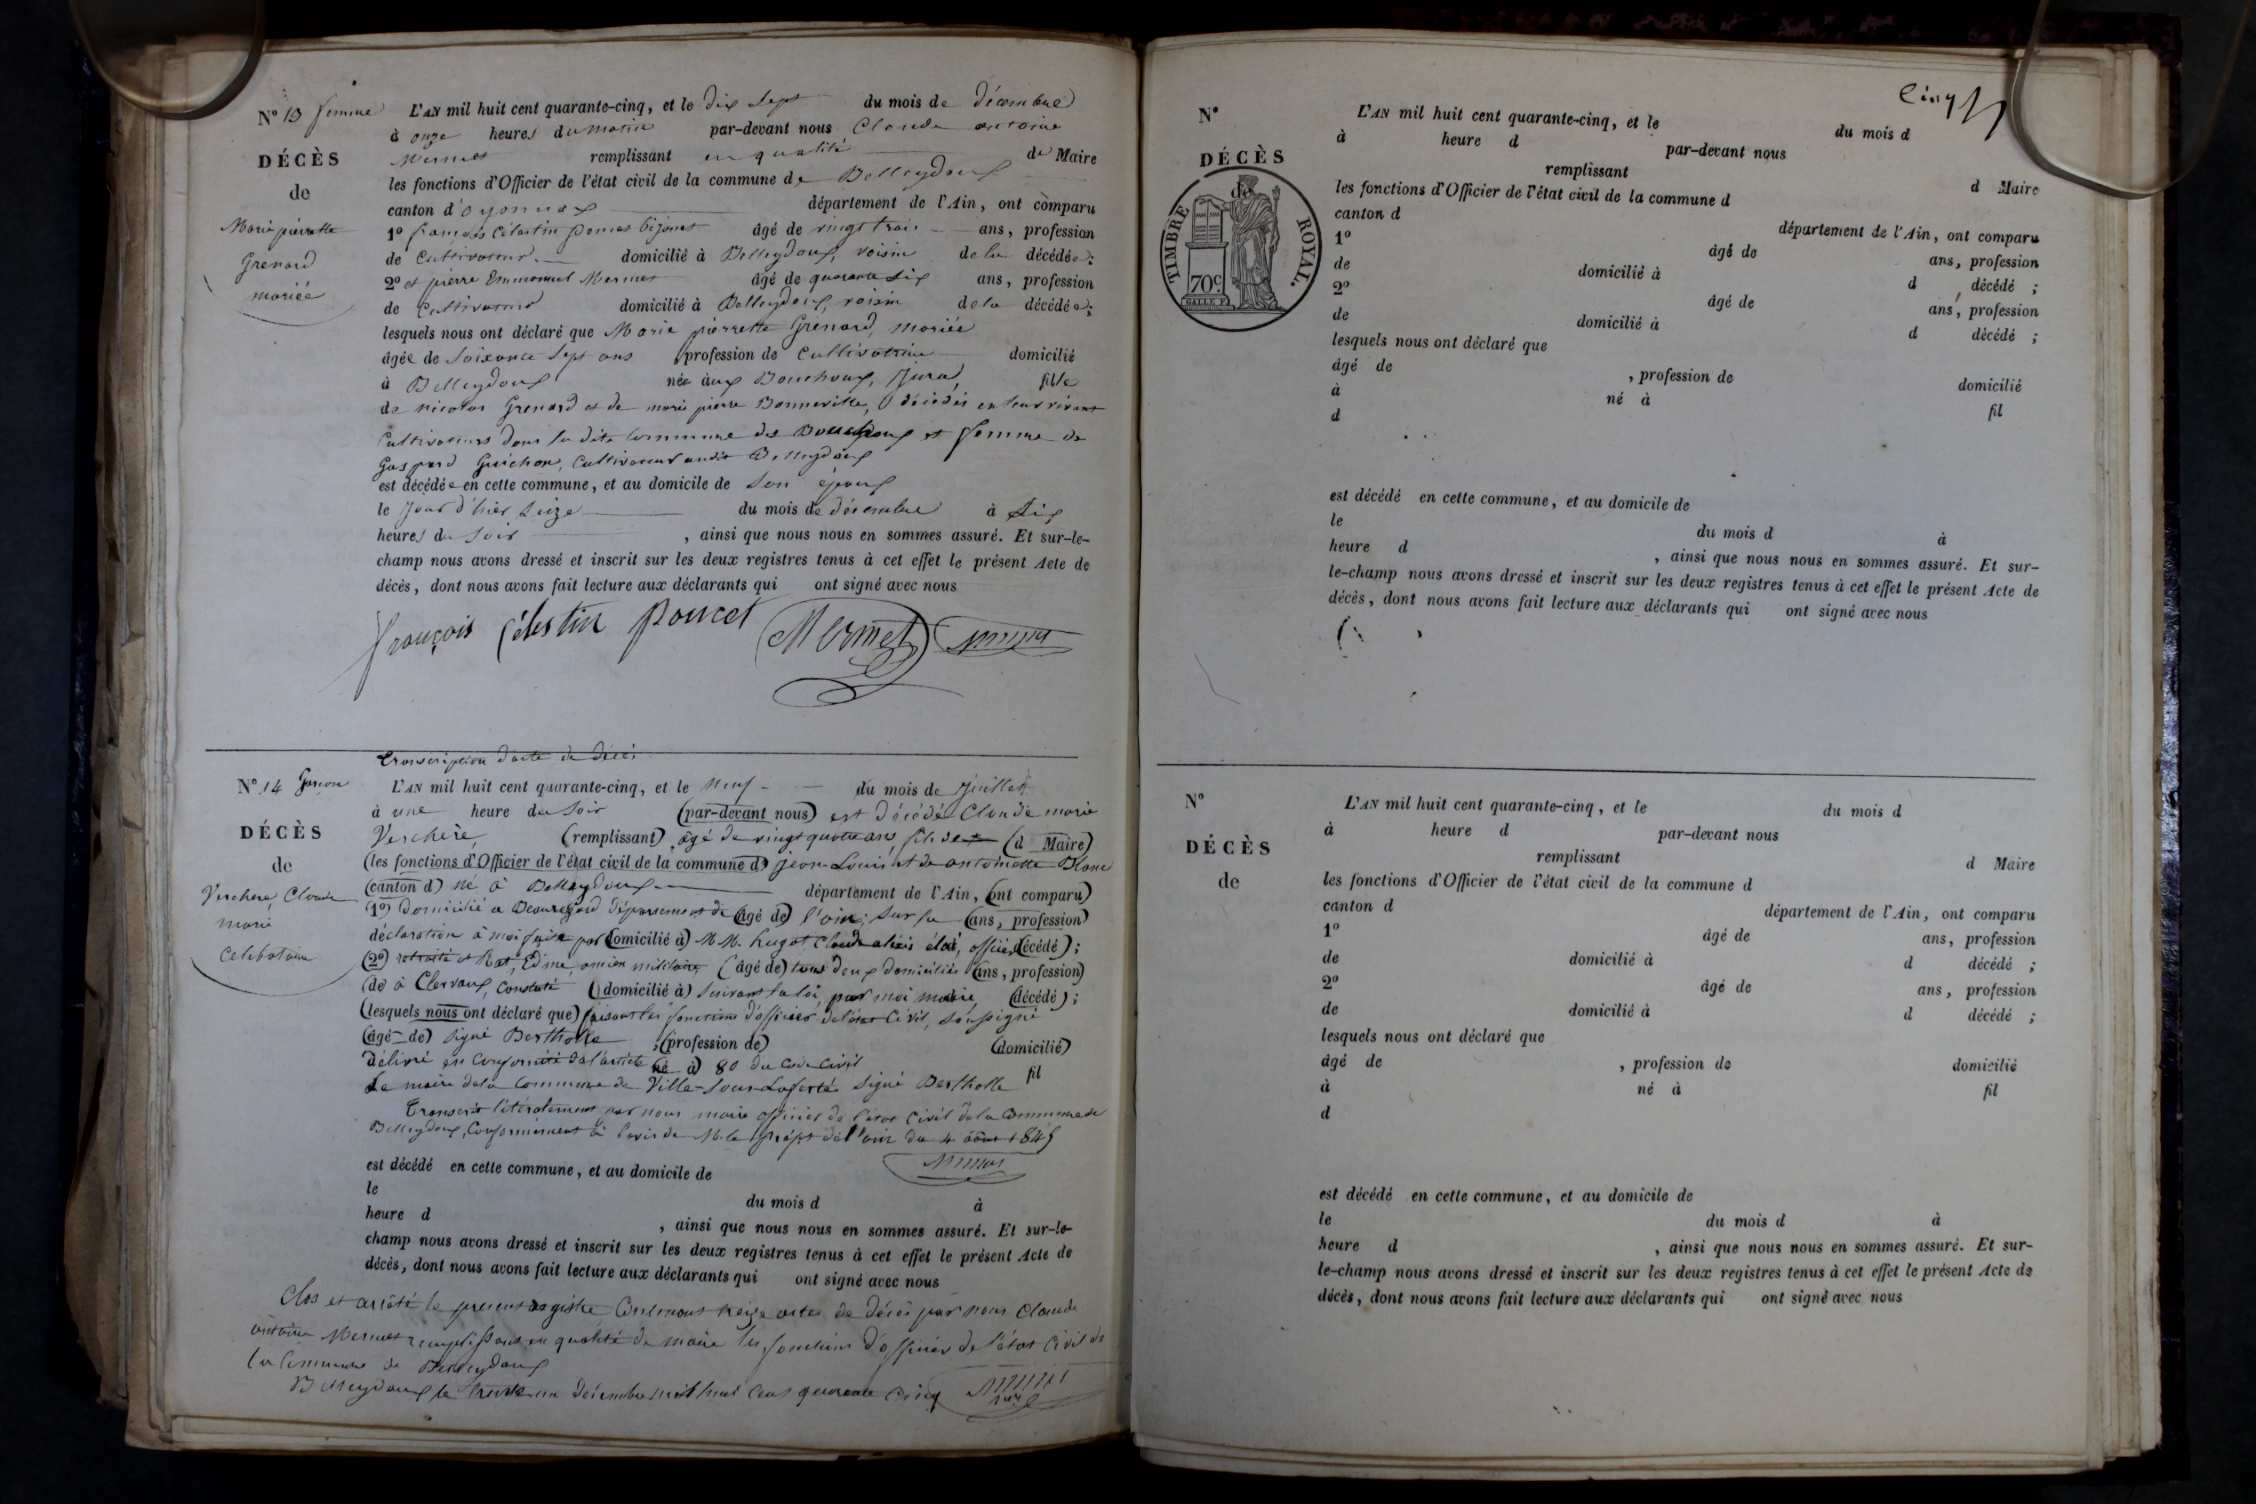 N° 13 femme
DÉCÈS
de
Marie pierrette
Grenard
mariée
L'AN mil huit cent quarante-cinq, et le dix sept du mois de décembre
à onze heures du matin par-devant nous Claude antoine
Mermet remplissant en qualité de Maire
les fonctions d'Officier de l'état civil de la commune de Belleydoux
canton d'oyonnax département de l'Ain, ont comparu
1° françois Célestin âgé de vingt trois ans, profession
de Cultivateur domicilié à Belleydoux, voisin de la décédée;
2° et pierre Emmanuel Mermet âgé de quarante six ans, profession
de Cultivateur domicilié à Belleydoux, voisin de la décédée;
lesquels nous ont déclaré que Marie pierrette Grenard, mariée
âgée de soixante sept ans profession de Cultivatrice domicilié
à Belleydoux née aux Bouchoux, Jura, fille
de nicolas Grenard et de marie pierre Bonneville, décédés en leur vivant
Cultivateurs dans la dite Commune des Bouchoux et femme de
Gaspard Guichon, Cultivateur audit Belleydoux
est décédée en cette commune, et au domicile de son époux
le jour d'hier seize du mois de décembre à six
heures du soir, ainsi que nous nous en sommes assuré. Et sur-le-
champ nous avons dressé et inscrit sur les deux registres tenus à cet effet le présent Acte de
décès, dont nous avons fait lecture aux déclarants qui ont signé avec nous
françois Célestin Poncet Mermet Mermet
transcription d'acte de décès
N° 14 Garçon
DÉCÈS
de
Verchere, Claude
marie
Celibataire
L'AN mil huit cent quarante-cinq, et le neuf du mois de Juillet
à une heure du soir (par-devant nous) est décédé Claude marie
Verchère, (remplissant) âgé de vingt quatre ans, fils de (d Maire)
(les fonctions d'Officier de l'état civil de la commune d) jean-Louis et de antoinette Blanc
(canton d) né à Belleydoux département de l'Ain, (ont comparu)
(1°) Domicilié a Beauregard département de (âgé de) l'ain; sur la (ans, profession)
déclaration à moi faite par (domicilié à) M.M. hugot Claude alexis officier (décédé);
(2°) retraité et Edme, ancien militaire, (âgé de) tous deux domiciliés (ans, profession)
(de) à Clervaux, Constaté (domicilié à) suivant la loi, par moi maire, (décédé);
(lesquels nous ont déclaré que) faisant les fonctions d'officier de l'état Civil, soussigné
(âgé de) signé Bertholle, (profession de) (domicilié)
Délivré en Conformité de l'article (né à) 80 du Code Civil
Le maire de la Commune de Ville-sous-Laferté signé Bertholle fil
Transcrit litéralement par nous maire officier de l'état Civil de la Commune de
Belleydoux, Conformément à l'avis de M. le préfet de l'ain du 4 août 1845
Mermet
est décédé en cette commune, et au domicile de
le du mois d à
heure d, ainsi que nous nous en sommes assuré. Et sur-le-
champ nous avons dressé et inscrit sur les deux registres tenus à cet effet le présent Acte de
décès, dont nous avons fait lecture aux déclarants qui ont signé avec nous
Clos et arrêté le présent registre Contenant treize actes de décès par nous Claude
antoine Mermet remplissant en qualité de maire les fonctions d'officier de l'état Civil de
la Commune de Belleydoux
Belleydoux le trente un décembre mil huit cent quarante cinq Mermet
Cinq
N°
DÉCÈS
de
TIMBRE ROYAL.
70c.
L'AN mil huit cent quarante-cinq, et le du mois d
à heure d par-devant nous
remplissant d Maire
les fonctions d'Officier de l'état civil de la commune d
canton d département de l'Ain, ont comparu
1° âgé de ans, profession
de domicilié à d décédé ;
2° âgé de ans, profession
de domicilié à d décédé ;
lesquels nous ont déclaré que
âgé de, profession de domicilié
à né à fil
d
est décédé en cette commune, et au domicile de
le du mois d à
heure d, ainsi que nous nous en sommes assuré. Et sur-
le-champ nous avons dressé et inscrit sur les deux registres tenus à cet effet le présent Acte de
décès, dont nous avons fait lecture aux déclarants qui ont signé avec nous
N°
DÉCÈS
de
L'AN mil huit cent quarante-cinq, et le du mois d
à heure d par-devant nous
remplissant d Maire
les fonctions d'Officier de l'état civil de la commune d
canton d département de l'Ain, ont comparu
1° âgé de ans, profession
de domicilié à d décédé ;
2° âgé de ans, profession
de domicilié à d décédé ;
lesquels nous ont déclaré que
âgé de, profession de domicilié
à né à fil
d
est décédé en cette commune, et au domicile de
le du mois d à
heure d, ainsi que nous nous en sommes assuré. Et sur-
le-champ nous avons dressé et inscrit sur les deux registres tenus à cet effet le présent Acte de
décès, dont nous avons fait lecture aux déclarants qui ont signé avec nous